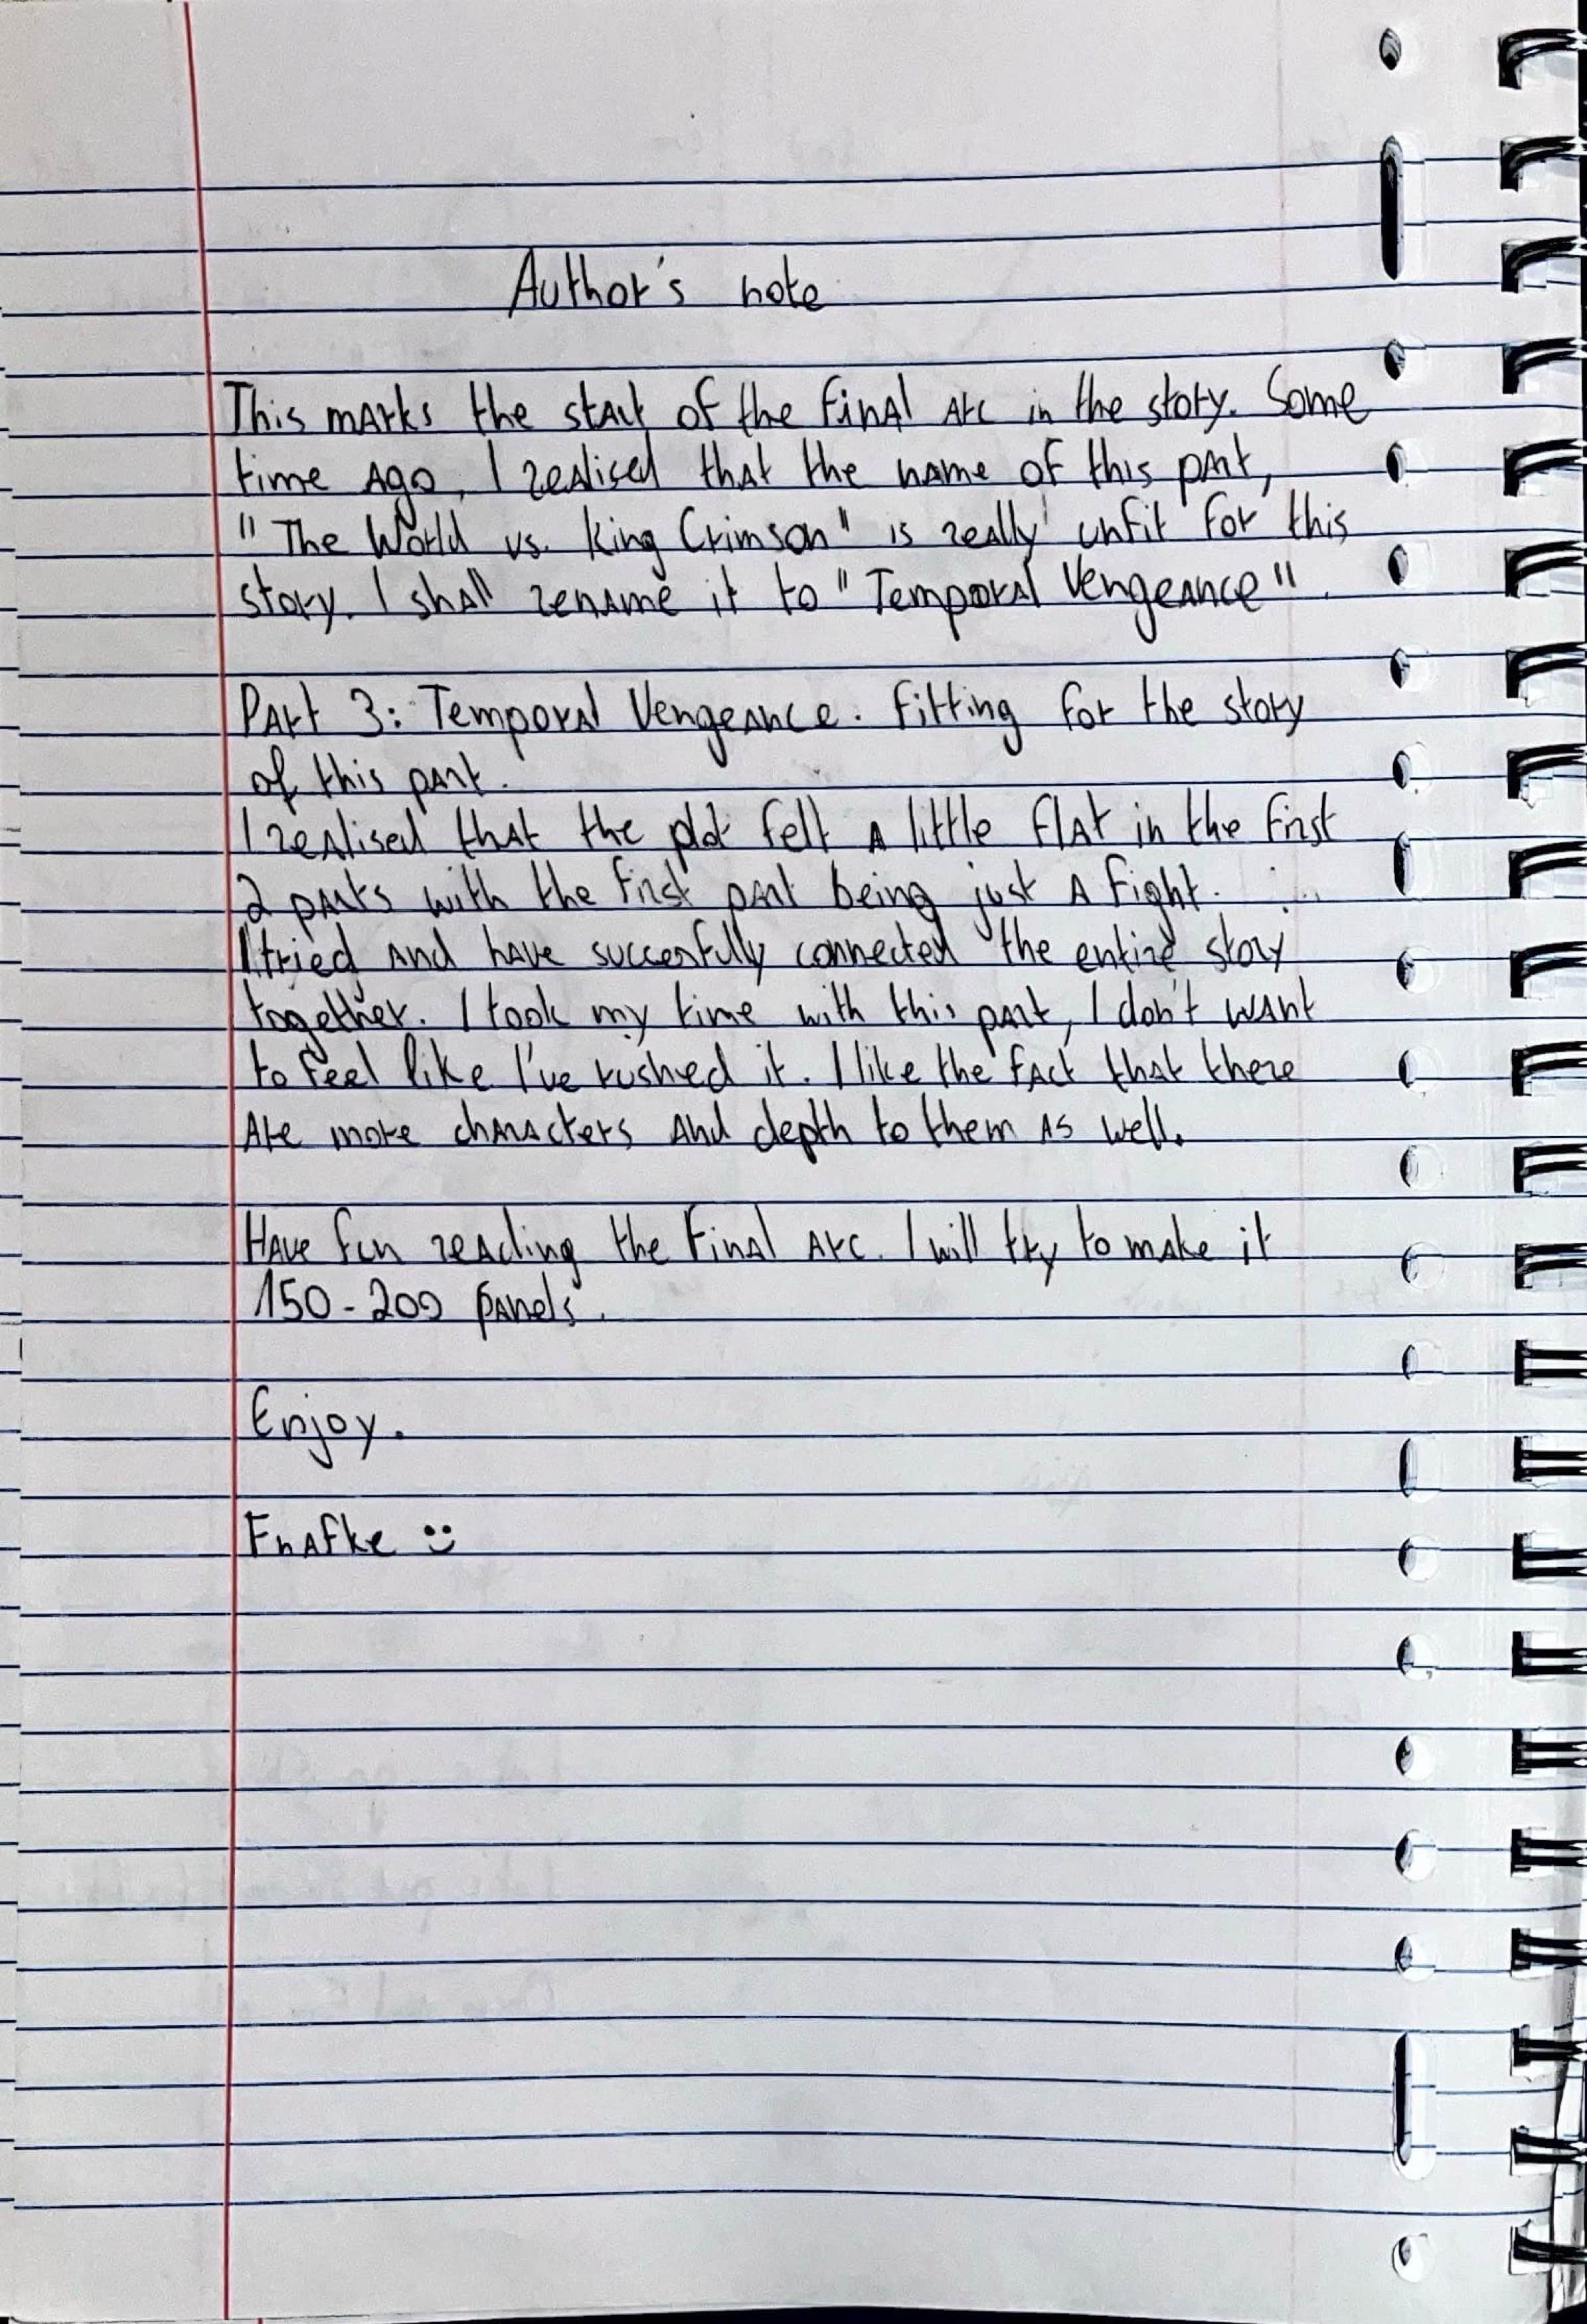 Author's note
This marks the start of the final arc in the story. Some
time ago, I realised that the name of this part,
"The World vs. King Crimson" is really unfit for this
story. I shall rename it to "Temporal Vengeance".
Part 3: Temporal Vengeance. Fitting for the story
of this part.
I realised that the plot felt a little flat in the first
2 parts with the first part being just a fight.
I tried and have succesfully connected the entire story
together. I took my time with this part, I don't want
to feel like I've rushed it. I like the fact that there
are more characters and depth to them as well.
Have fun reading the final arc. I will try to make it
150-200 panels.
Enjoy.
Fnafke :)